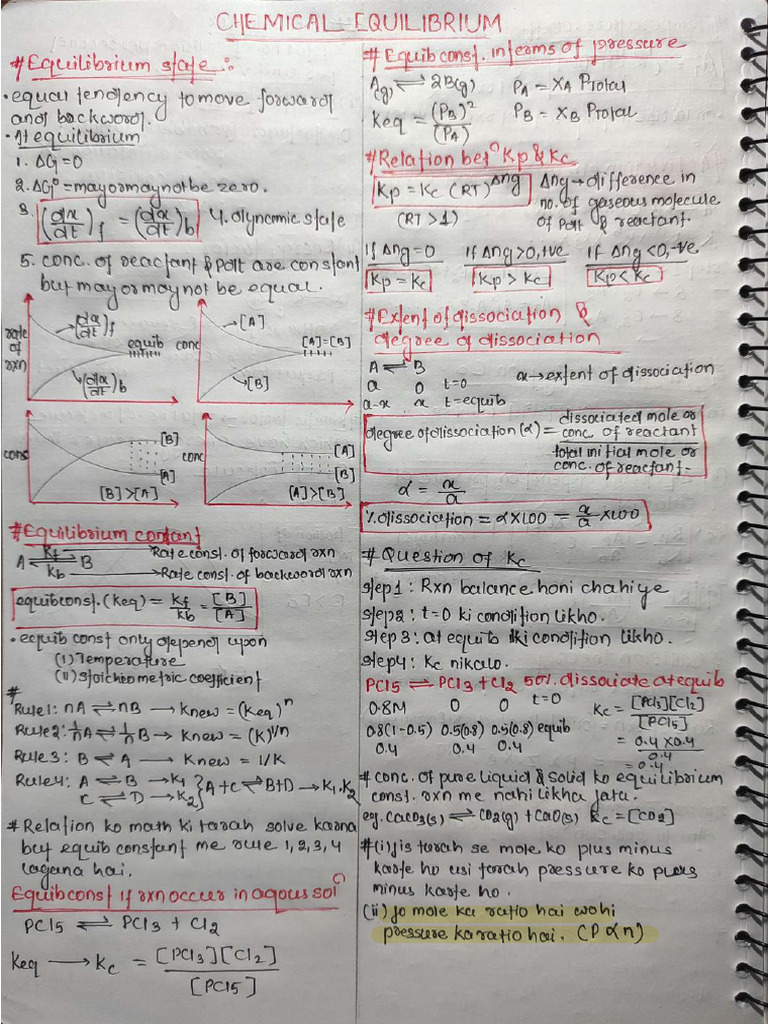 CHEMICAL EQUILIBRIUM
# Equilibrium state :-
• equal tendency to move forward
and backword.
• At equilibrium
1. ΔG = 0
2. ΔG° = may or may not be zero.
3. (dx/dt)f = (dx/dt)b 4. dynamic state
5. conc. of reactant & pdt are constant
but may or may not be equal.
rate of rxn
(dx/dt)f
equib
(dx/dt)b
conc
[A]
[A]=[B]
[B]
cons
[B]
[A]
[B]>[A]
conc
[A]
[B]
[A]>[B]
# Equilibrium contant
A ⇌ B
Kf → Rate const. of forward rxn
kb → Rate const. of backword rxn
equib const. (Keq) = Kf/kb = [B]/[A]
• equib const only depend upon
(i) Temperature
(ii) stoichiometric coefficient
#
Rule1: nA ⇌ nB → Knew = (Keq)^n
Rule2: 1/n A ⇌ 1/n B → Knew = (K)^1/n
Rule3: B ⇌ A → Knew = 1/K
Rule4: A ⇌ B → K1
C ⇌ D → K2 } A+C ⇌ B+D → K1.K2
# Relation ko math ki tarah solve karna
but equib constant me rule 1, 2, 3, 4
lagana hai.
Equib const if rxn occur in aqous solⁿ
PCl5 ⇌ PCl3 + Cl2
Keq → Kc = [PCl3][Cl2]/[PCl5]
# Equib const. in terms of pressure
A(g) ⇌ 2B(g) PA = XA Ptotal
Keq = (PB)²/(PA) PB = XB Ptotal
# Relation betⁿ Kp & Kc
Kp = Kc (RT)^Δng Δng → difference in
no. of gaseous molecule
(RT>1) of pdt & reactant.
if Δng = 0 if Δng > 0, +ve if Δng < 0, -ve
Kp = Kc Kp > Kc Kp < Kc
# Extent of dissociation &
degree of dissociation
A ⇌ B
a 0 t=0 x → extent of dissociation
a-x x t=equib
degree of dissociation (α) = dissociated mole or conc. of reactant / total initial mole or conc. of reactant.
α = x/a
% dissociation = α×100 = x/a ×100
# Question of Kc
step1: Rxn balance honi chahiye
step2: t=0 ki condition likho.
step3: at equib ki condition likho.
step4: Kc nikalo.
PCl5 ⇌ PCl3 + Cl2 50% dissociate at equib
0.8M 0 0 t=0 Kc = [PCl3][Cl2]/[PCl5]
0.8(1-0.5) 0.5(0.8) 0.5(0.8) equib
0.4 0.4 0.4 = 0.4×0.4/0.4
= 0.4
# conc. of pure liquid & solid ko equilibrium
const. rxn me nahi likha jata.
eg. CaCO3(s) ⇌ CO2(g) + CaO(s) Kc = [CO2]
# (i) Jis tarah se mole ko plus minus
karte ho usi tarah pressure ko plus
minus karte ho.
(ii) Jo mole ka ratio hai wohi
pressure ka ratio hai. (P ∝ n)